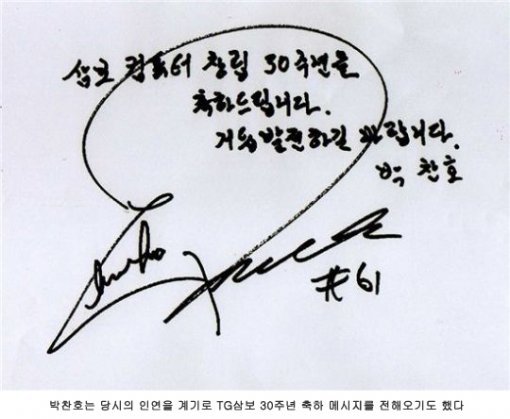 삼보 컴퓨터 창립 30주년을
축하드립니다.
거듭 발전하길 바랍니다.
박 찬 호
Chan Ho Park
#61
박찬호는 당시의 인연을 계기로 TG삼보 30주년 축하 메시지를 전해오기도 했다